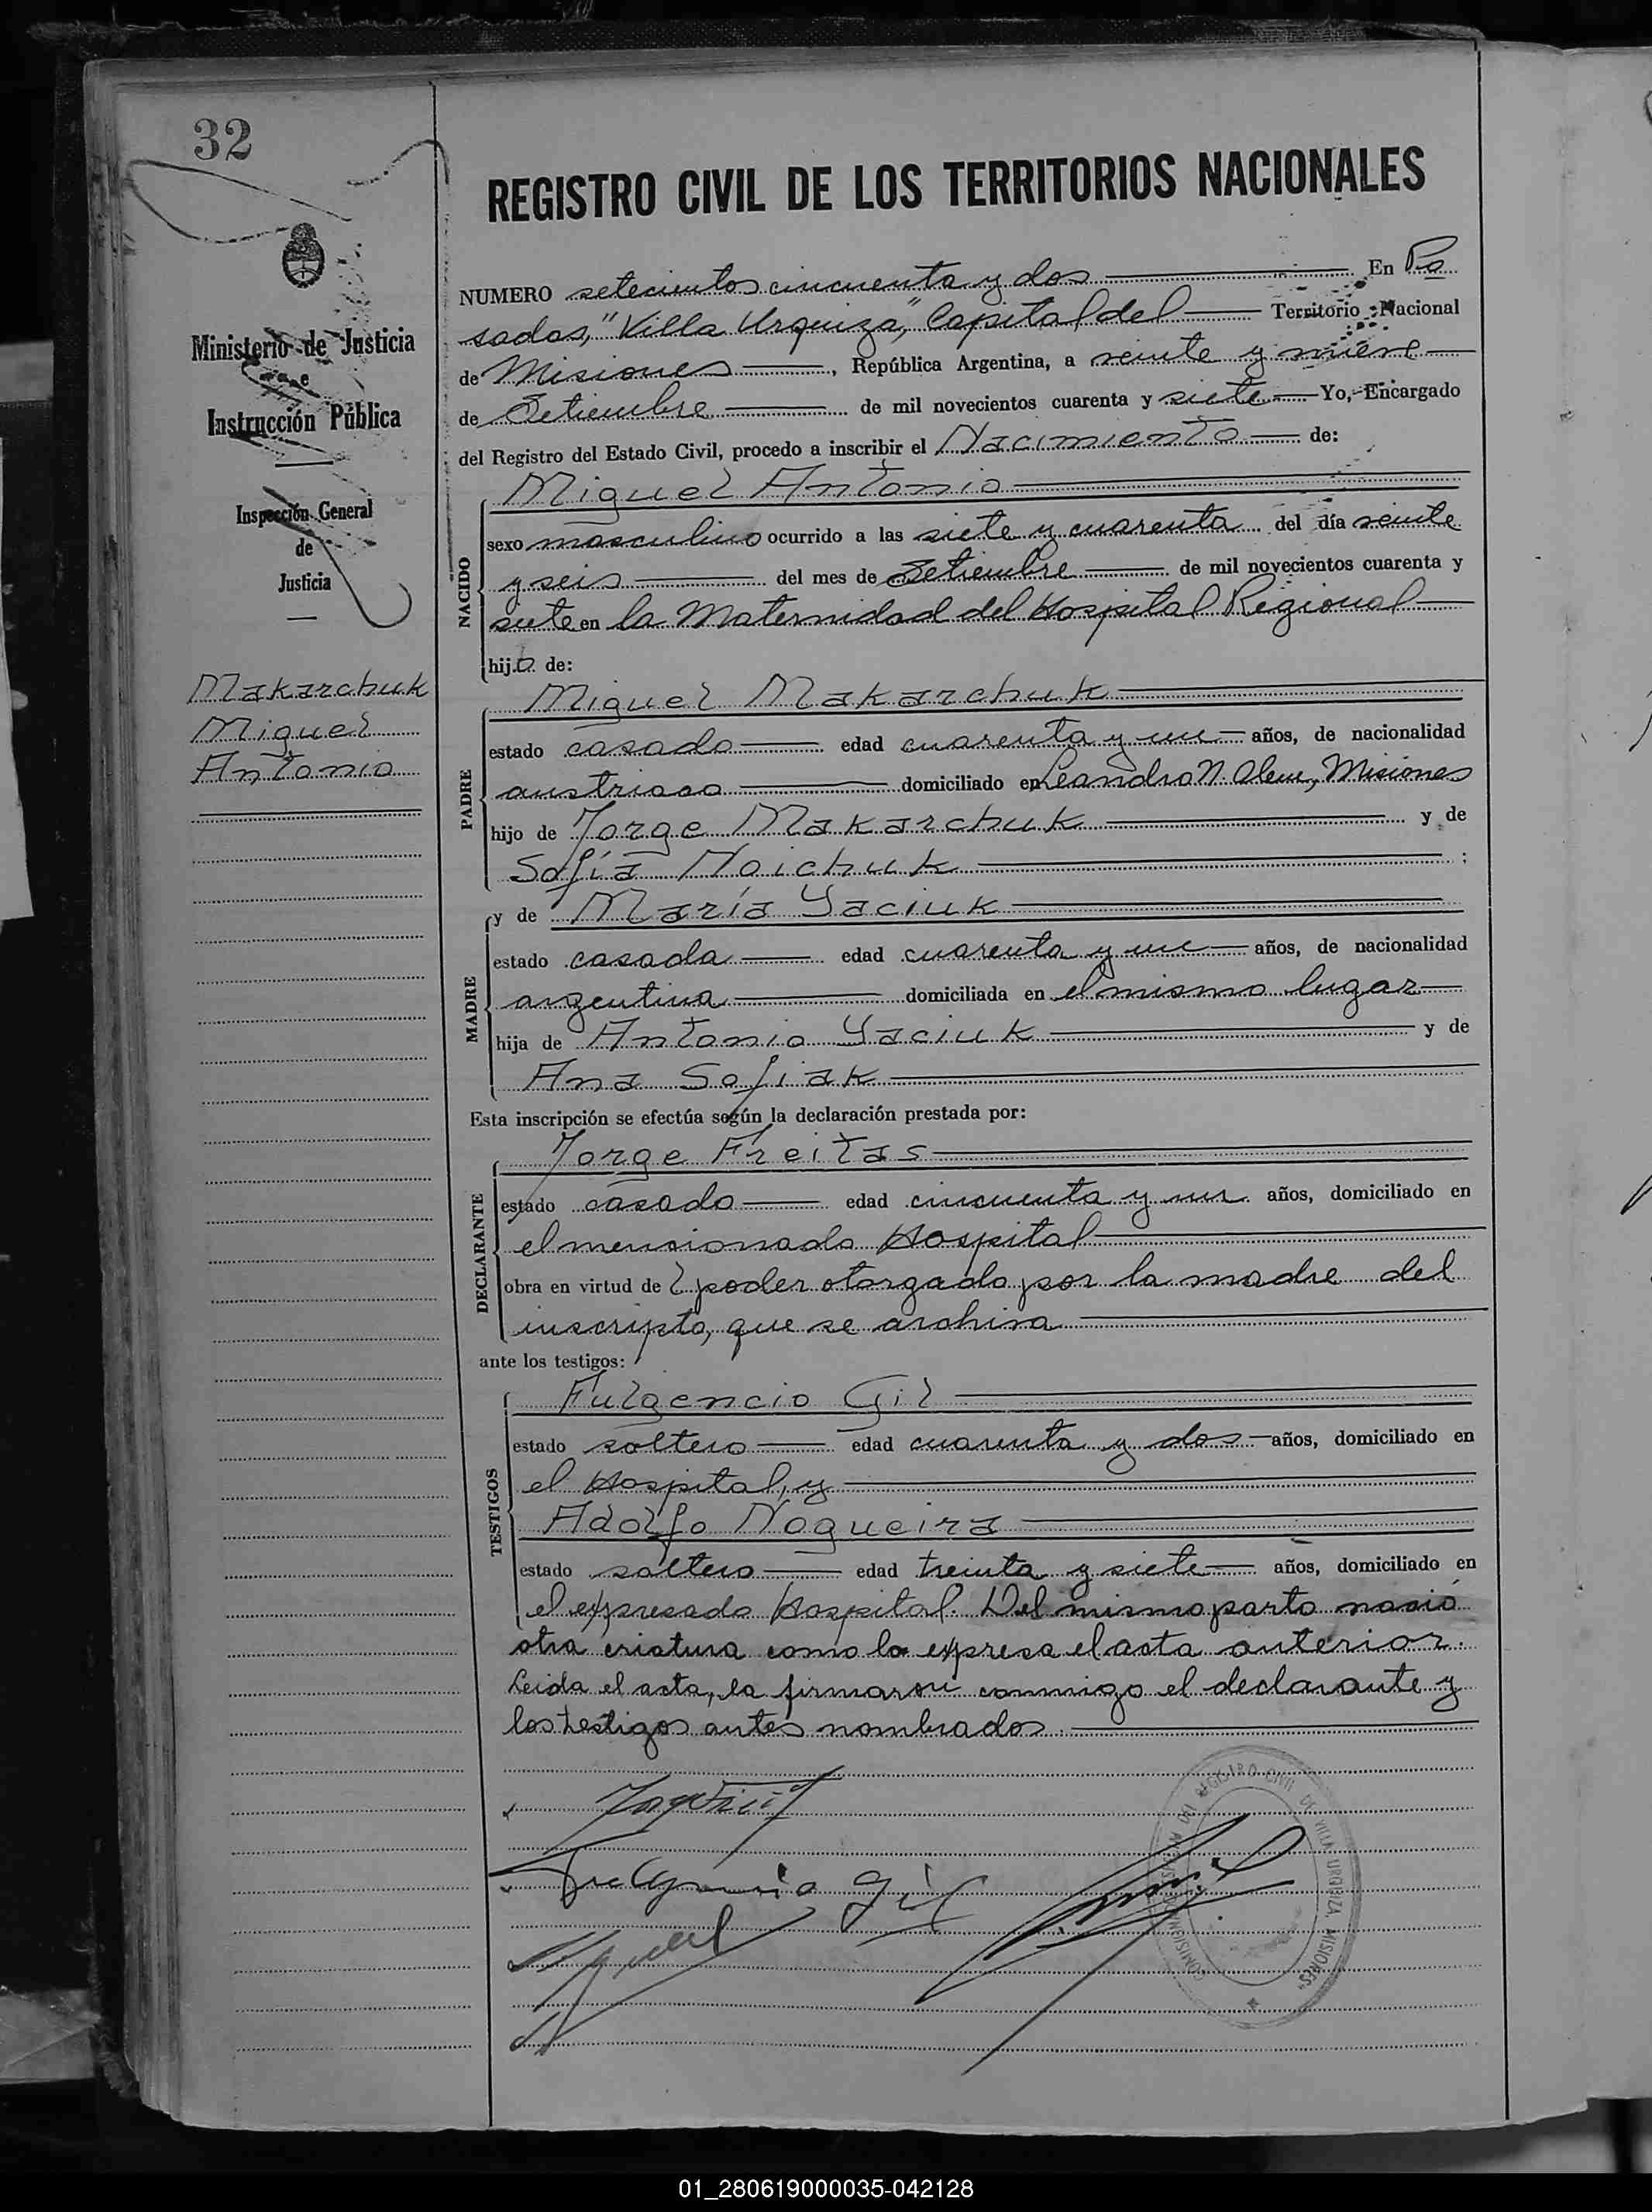 32
REGISTRO CIVIL DE LOS TERRITORIOS NACIONALES
Ministerio de Justicia
e
Instrucción Pública
Inspección General
de
Justicia
Makarchuk
Miguel
Antonio
NUMERO setecientos cincuenta y dos En Po
sadas, "Villa Urquiza", Capital del Territorio Nacional
de Misiones, República Argentina, a veinte y nueve
de Setiembre de mil novecientos cuarenta y siete Yo, Encargado
del Registro del Estado Civil, procedo a inscribir el Nacimiento de:
NACIDO
Miguel Antonio
sexo masculino ocurrido a las siete y cuarenta del día veinte
y seis del mes de Setiembre de mil novecientos cuarenta y
siete en la Maternidad del Hospital Regional
hijo de:
PADRE
Miguel Makarchuk
estado casado edad cuarenta y un años, de nacionalidad
austriaca domiciliado en Leandro N. Alem, Misiones
hijo de Jorge Makarchuk y de
Sofía Noichuk ;
MADRE
y de María Yaciuk
estado casada edad cuarenta y un años, de nacionalidad
argentina domiciliada en el mismo lugar
hija de Antonio Yaciuk y de
Ana Sofiak
Esta inscripción se efectúa según la declaración prestada por:
DECLARANTE
Jorge Freitas
estado casado edad cincuenta y un años, domiciliado en
el mencionado Hospital
obra en virtud de poder otorgado por la madre del
inscripto, que se archiva
ante los testigos:
TESTIGOS
Fulgencio Gil
estado soltero edad cuarenta y dos años, domiciliado en
el Hospital, y
Adolfo Nogueira
estado soltero edad treinta y siete años, domiciliado en
el expresado Hospital. Del mismo parto nació
otra criatura como lo expresa el acta anterior.
Leida el acta, la firmaron conmigo el declarante y
los testigos antes nombrados.
Fulgencio Gil
REGISTRO CIVIL DE VILLA URQUIZA MISIONES
01_280619000035-042128